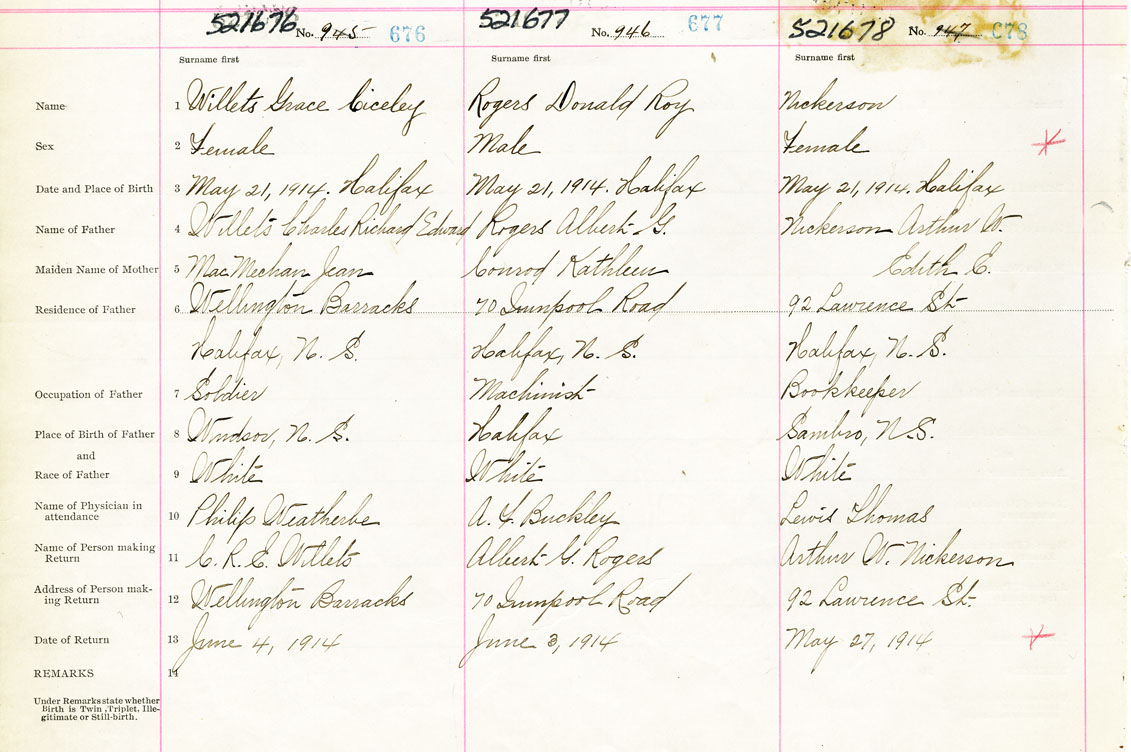 521676 No. 945 676 521677 No. 946 677 521678 No. 947 678
Surname first Surname first Surname first
Name 1 Willets Grace Ciceley Rogers Donald Roy Nickerson
Sex 2 Female Male Female
Date and Place of Birth 3 May 21, 1914. Halifax May 21, 1914. Halifax May 21, 1914. Halifax
Name of Father 4 Willets Charles Richard Edward Rogers Albert G. Nickerson Arthur W.
Maiden Name of Mother 5 MacMechan Jean Conrod Kathleen Edith E.
Residence of Father 6 Wellington Barracks 70 Road 92 Lawrence St
Halifax, N. S. Halifax, N. S. Halifax, N. S.
Occupation of Father 7 Soldier Machinist Bookkeeper
Place of Birth of Father 8 Windsor, N. S. Halifax Sambro, N.S.
and
Race of Father 9 White White White
Name of Physician in
attendance 10 Philip Weatherbe A. F. Buckley Lewis Thomas
Name of Person making
Return 11 C. R. E. Willets Albert G. Rogers Arthur W. Nickerson
Address of Person mak-
ing Return 12 Wellington Barracks 70 Road 92 Lawrence St.
Date of Return 13 June 4, 1914 June 3, 1914 May 27, 1914
REMARKS 14
Under Remarks state whether
Birth is Twin, Triplet, Ille-
gitimate or Still-birth.